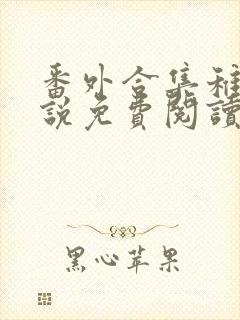 番外合集稚
說免費閱讀
黑心苹果